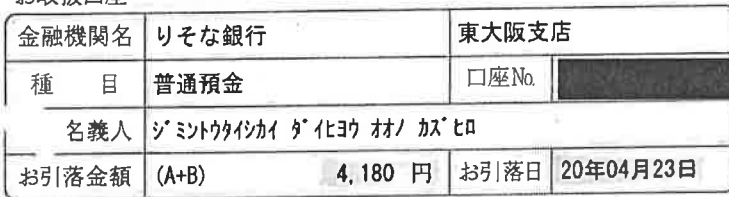 金融機関名 りそな銀行 東大阪支店
種 目 普通預金 口座No.
名義人 ジミントウタイシカイ ダイヒヨウ オオノ カズヒロ
お引落金額 (A+B) 4,180 円 お引落日 20年04月23日